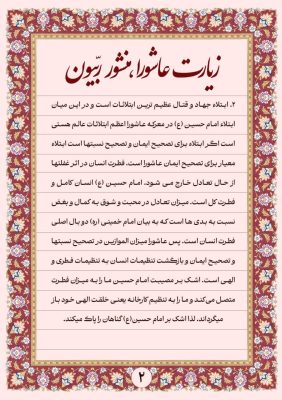 زیارت عاشورا، منشور ربیّون
۲. ابتلاء جهاد و قتال عظیم ترین ابتلائات است و در این میان
ابتلاء امام حسین (ع) در معرکه عاشورا اعظم ابتلائات عالم هستی
است اگر ابتلاء برای تصحیح ایمان و تصحیح نسبتها است ابتلاء
معیار برای تصحیح ایمان عاشورا است. فطرت انسان در اثر غفلتها
از حال تعادل خارج می شود، امام حسین (ع) انسان کامل و
فطرت کل است. میزان تعادل در محبت و شوق به کمال و بغض
نسبت به بدی ها است که به بیان امام خمینی (ره) دو بال اصلی
فطرت انسان است. پس عاشورا میزان الموازین در تصحیح نسبتها
و تصحیح ایمان و بازگشت تنظیمات انسان به تنظیمات فطری و
الهی است. اشک بر مصیبت امام حسین ما را به میزان فطرت
متصل می‌کند و ما را به تنظیم کارخانه یعنی خلقت الهی خود باز
میگرداند. لذا اشک بر امام حسین(ع) گناهان را پاک میکند.
۲